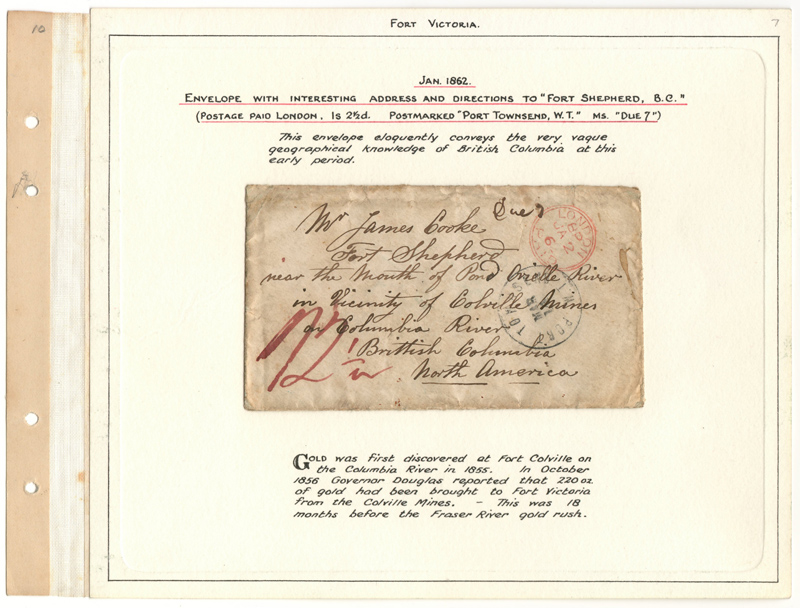 10
FORT VICTORIA.
7
JAN. 1862.
ENVELOPE WITH INTERESTING ADDRESS AND DIRECTIONS TO "FORT SHEPHERD, B.C."
(POSTAGE PAID LONDON, 1s 2½d. POSTMARKED "PORT TOWNSEND, W.T." MS. "DUE 7")
This envelope eloquently conveys the very vague
geographical knowledge of British Columbia at this
early period.
Due 7
Mr James Cooke
Fort Shepherd
near the Mouth of Pond Orielle River
in Vicinity of Colville Mines
on Columbia River
Brittish Columbia
North America
LONDON
JA 2
PAID
PORT
GOLD was first discovered at Fort Colville on
the Columbia River in 1855. In October
1856 Governor Douglas reported that 220 oz
of gold had been brought to Fort Victoria
from the Colville Mines. – This was 18
months before the Fraser River gold rush.